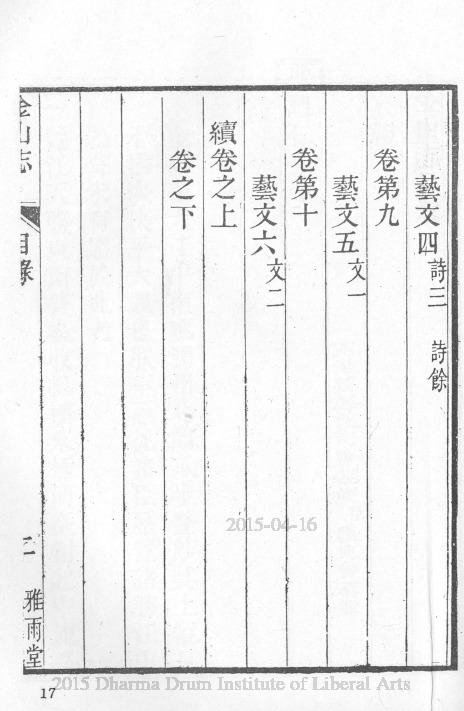 藝文四 詩三 詩餘
卷第九
藝文五 文一
卷第十
藝文六 文二
續卷之上
卷之下
金山志 目錄 二 雅雨堂
2015-04-16
17
2015 Dharma Drum Institute of Liberal Arts